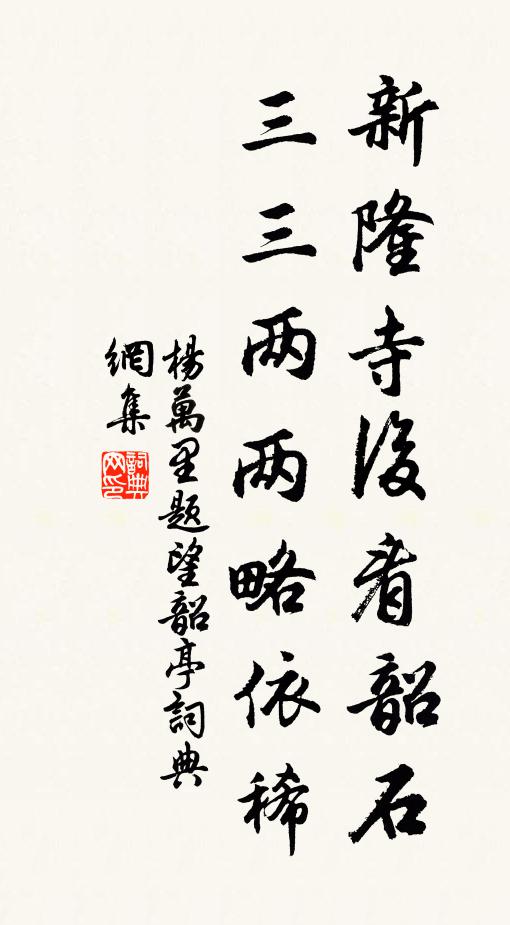 新隆寺後看韶石
三三两两略依稀
楊萬里題望韶亭詞典
網集
詞典
网印